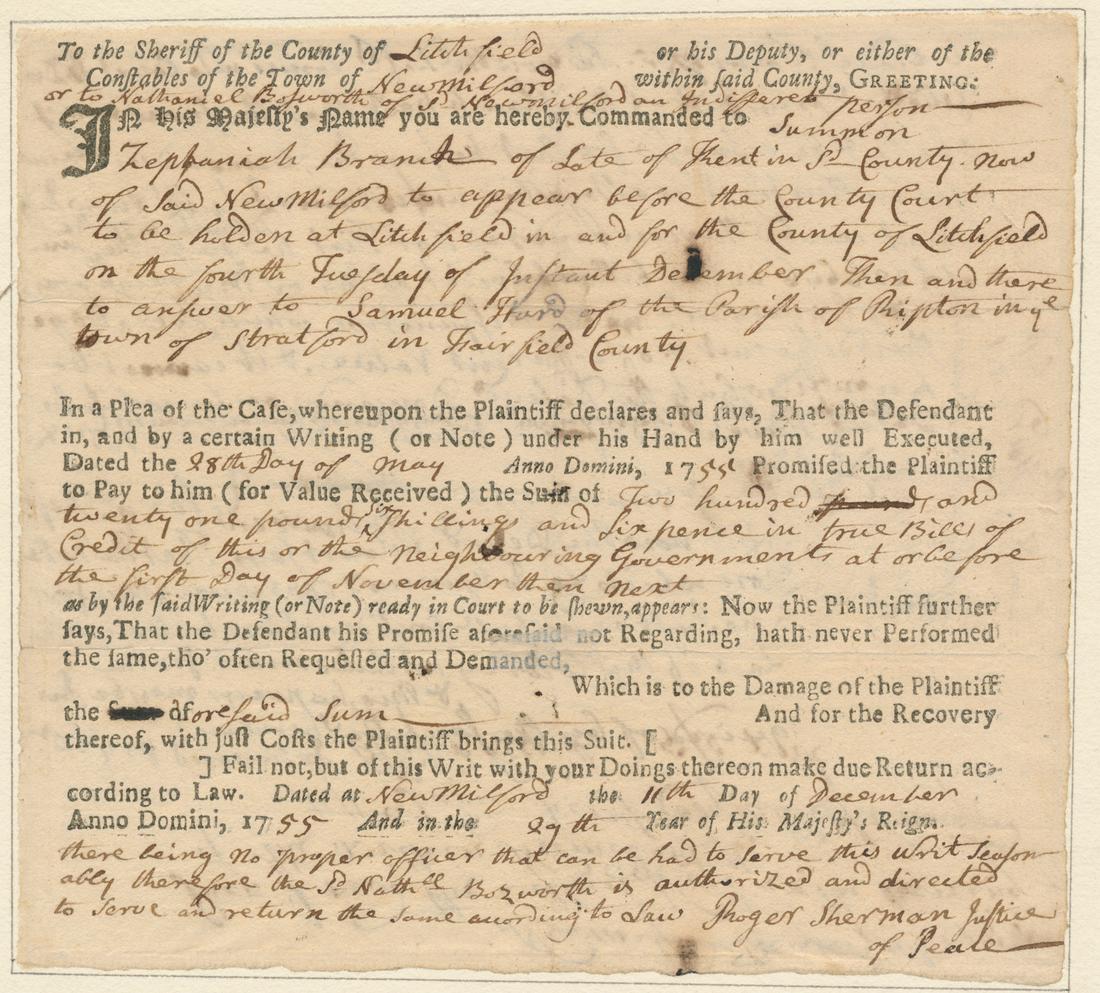 To the Sheriff of the County of Litchfield or his Deputy, or either of the
Conſtables of the Town of New Milford within ſaid County, GREETING:
or to Nathaniel Bosworth of Sd New milford an Indifferet person
IN His Majeſty's Name you are hereby Commanded to Summon
Zephaniah Branch of Late of Kent in Sd County now
of Said New Milford to appear before the County Court
to be holden at Litchfield in and for the County of Litchfield
on the fourth Tuesday of Instant December Then and there
to answer to Samuel Hurd of the Parish of Ripton in ye
town of Stratford in Fairfield County.
In a Plea of the Caſe, whereupon the Plaintiff declares and ſays, That the Defendant
in, and by a certain Writing ( or Note ) under his Hand by him well Executed,
Dated the 28th Day of May Anno Domini, 1755 Promiſed the Plaintiff
to Pay to him ( for Value Received ) the Sum of Two hundred pounds, and
twenty one pounds six Shillings and Six pence in true Bills of
Credit of this or the Neighbouring Governments at or before
the first Day of November then next
as by the ſaid Writing (or Note) ready in Court to be ſhewn, appears: Now the Plaintiff further
ſays, That the Defendant his Promiſe aforeſaid not Regarding, hath never Performed
the ſame, tho' often Requeſted and Demanded,
Which is to the Damage of the Plaintiff
the Sum aforesaid Sum And for the Recovery
thereof, with juſt Coſts the Plaintiff brings this Suit. [
] Fail not, but of this Writ with your Doings thereon make due Return ac-
cording to Law. Dated at New Milford the 11th Day of December
Anno Domini, 1755 And in the 29th Year of His Majeſty's Reign.
there being no proper officer that can be had to serve this writ Season
ably therefore the Sd Nathll Bozworth is authorized and directed
to serve and return the same acording to Law Roger Sherman Justice
of Peace